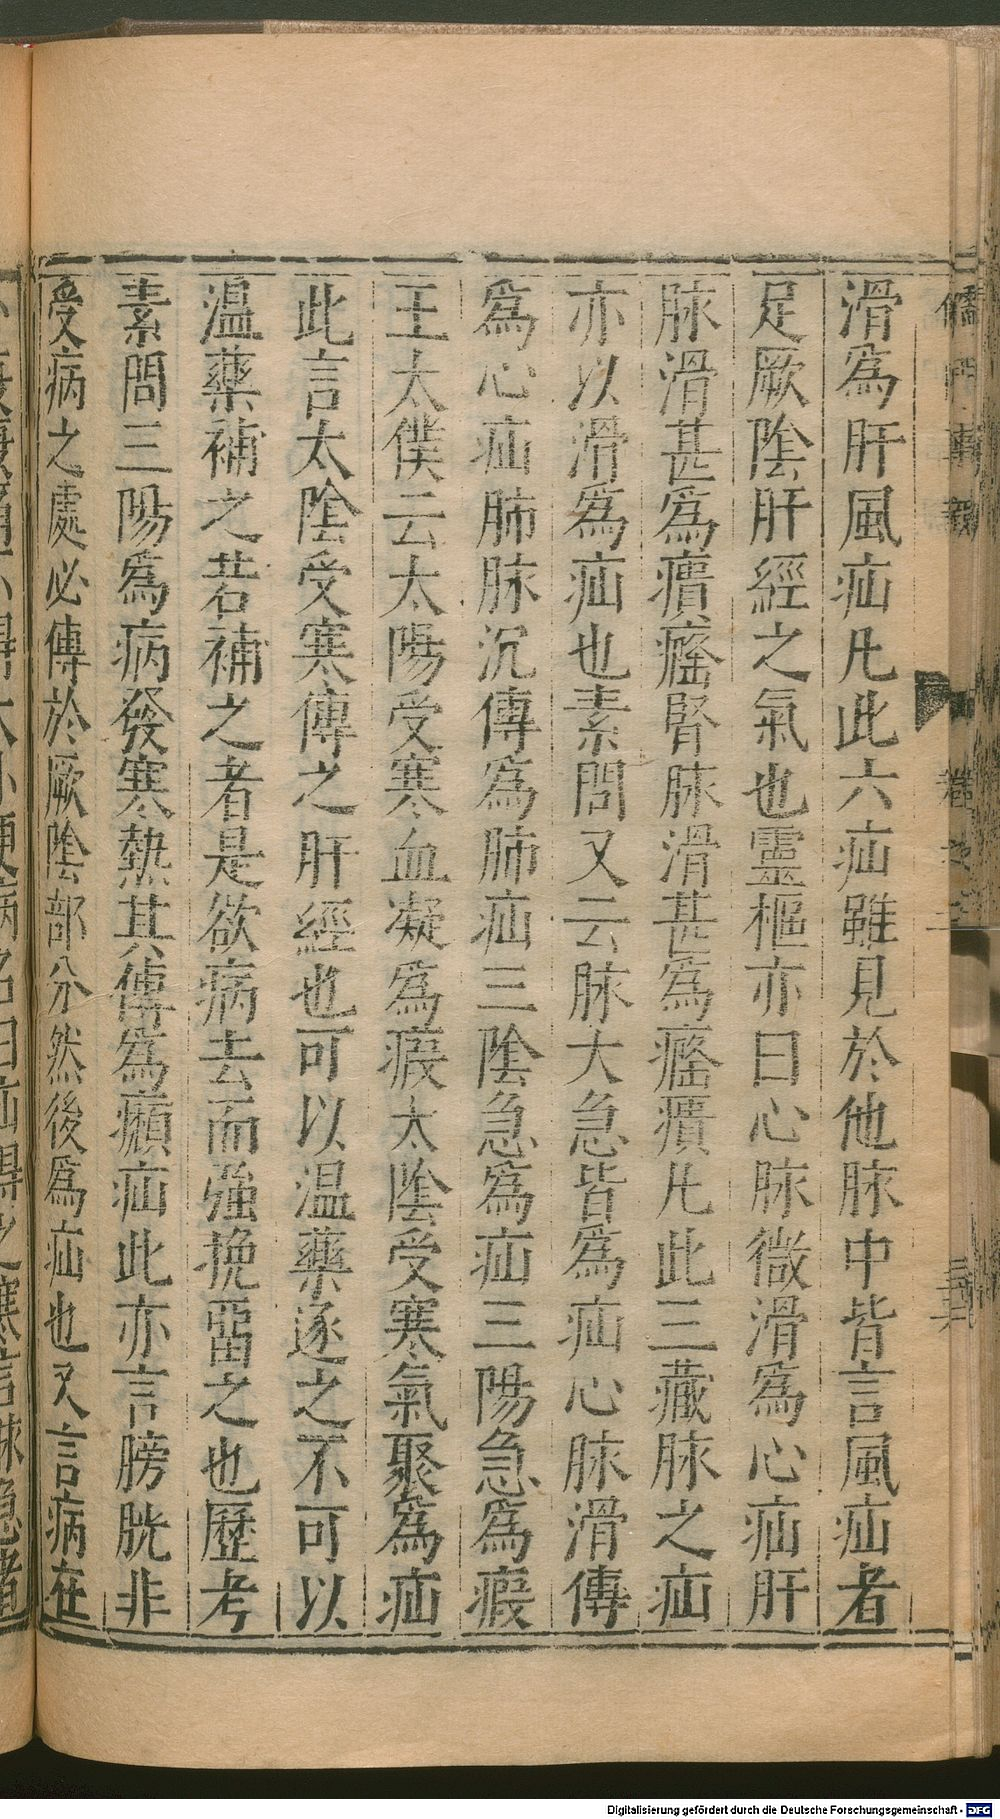 滑爲肝風疝凡此六疝雖見於他脉中皆言風疝者
足厥陰肝經之氣也靈樞亦曰心脉微滑爲心疝肝
脉滑甚爲㿉癃腎脉滑甚爲癃㿉凡此三藏脉之疝
亦以滑爲疝也素問又云脉大急皆爲疝心脉滑傳
爲心疝肺脉沉傳爲肺疝三陰急爲疝三陽急爲瘕
王太僕云太陽受寒血凝爲瘕太陰受寒氣聚爲疝
此言太陰受寒傳之肝經也可以温藥逐之不可以
温藥補之若補之者是欲病去而強挽畱之也歷考
素問三陽爲病發寒熱其傳爲㿗疝此亦言膀胱非
受病之處必傳於厥隂部分然後爲疝也又言病在
Digitalisierung gefördert durch die Deutsche Forschungsgemeinschaft - DFG